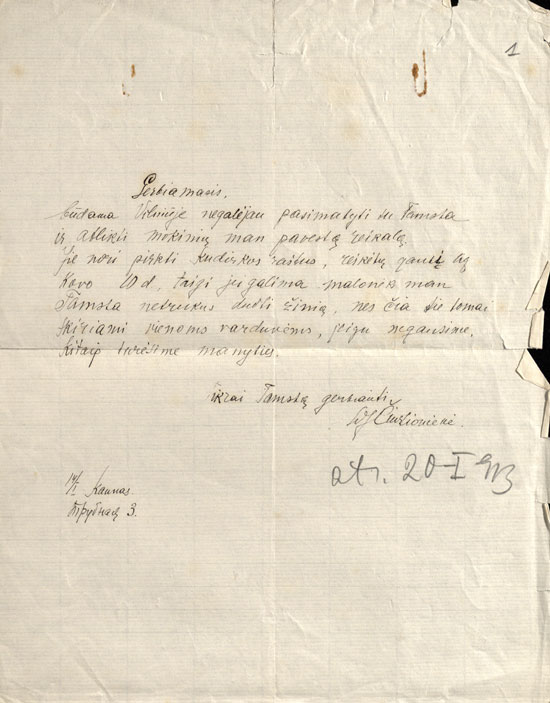 1
Gerbiamasis.
būdama Vilniuje negalėjau pasimatyti su Tamsta
ir atlikti mokinių man pavestą reikalą.
Jie nori pirkti Kudirkos raštus, reikėtų gauti
Kovo 10 d, taigi jei galima malonėk man
Tamsta netrukus duoti žinią, nes čia šie tomai
skiriami vienoms varduvėms, jeigu negausime,
kitaip turėsime manyties.
tikrai Tamstą gerbianti
Čiurlionienė.
14/I Kaunas.
Трубная 3.
at. 20-I 913